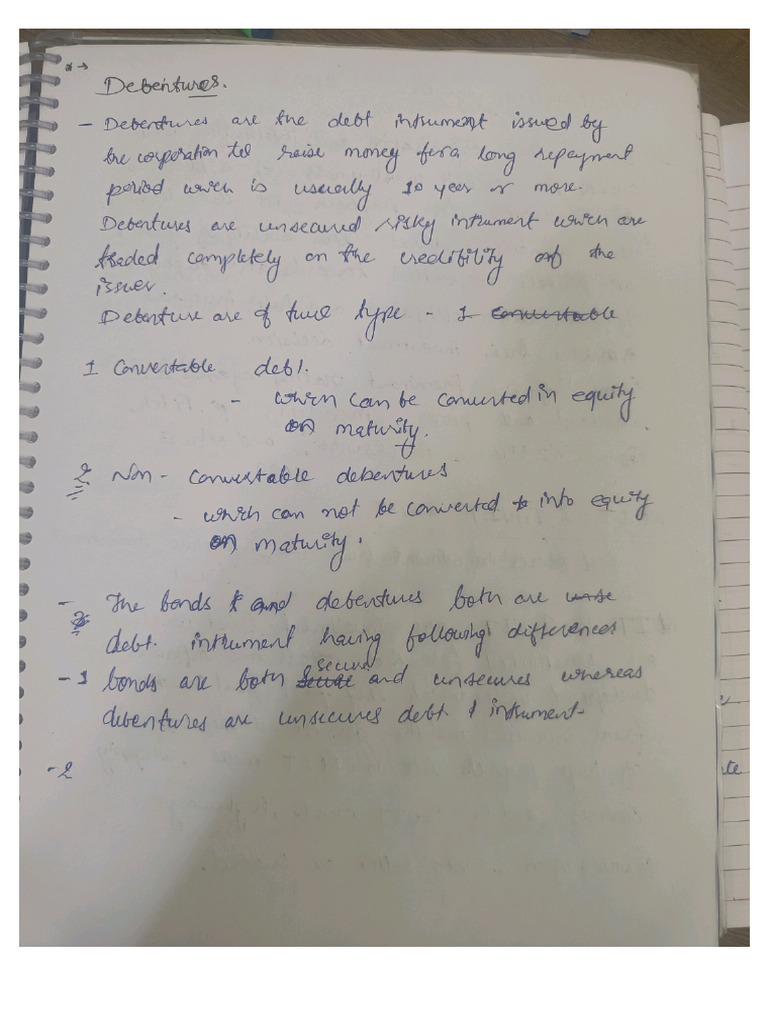 * →
Debentures.
- Debentures are the debt intrument issued by
the corporation to raise money for a long repayment
period which is usually 10 year or more.
Debentures are unsecured risky intrument which are
traded completely on the credibility of the
issuer.
Debenture are of two type - 1 convertable
1 Convertable debt.
- which can be converted in equity
on maturity.
2. Non - convertable debentures
- which can not be converted into equity
on maturity.
- The bonds and debentures both are unse
debt. intrument having following differences
- 1 bonds are both secure and unsecures whereas
debentures are unsecures debt intrument.
- 2
te